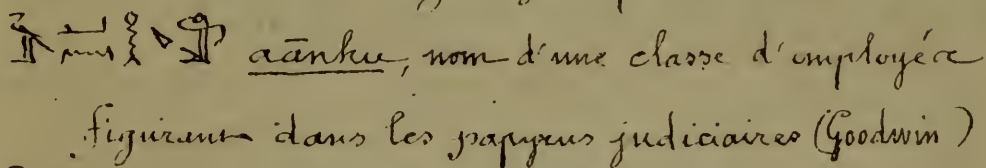 aānhu, nom d'une classe d'employés
figurant dans les papyrus judiciaires (Goodwin)